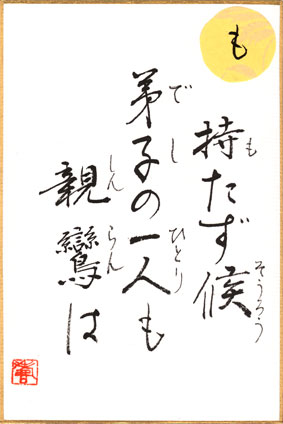 も
持たず候
も そうろう
弟子の一人も
でし ひとり
親鸞は
しんらん